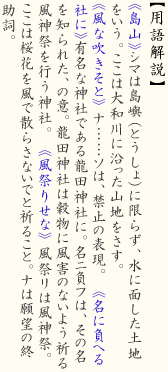 【用語解説】
《島山》シマは島嶼(とうしょ)に限らず、水に面した土地
をいう。ここは大和川に沿った山地をさす。
《風な吹きそと》ナ……ソは、禁止の表現。 《名に負へる
社に》有名な神社である龍田神社に。名ニ負フは、その名
を知られた、の意。龍田神社は穀物に風害のないよう祈る
風神祭を行う神社。 《風祭りせな》風祭リは風神祭。
ここは桜花を風で散らさないでと祈ること。ナは願望の終
助詞。